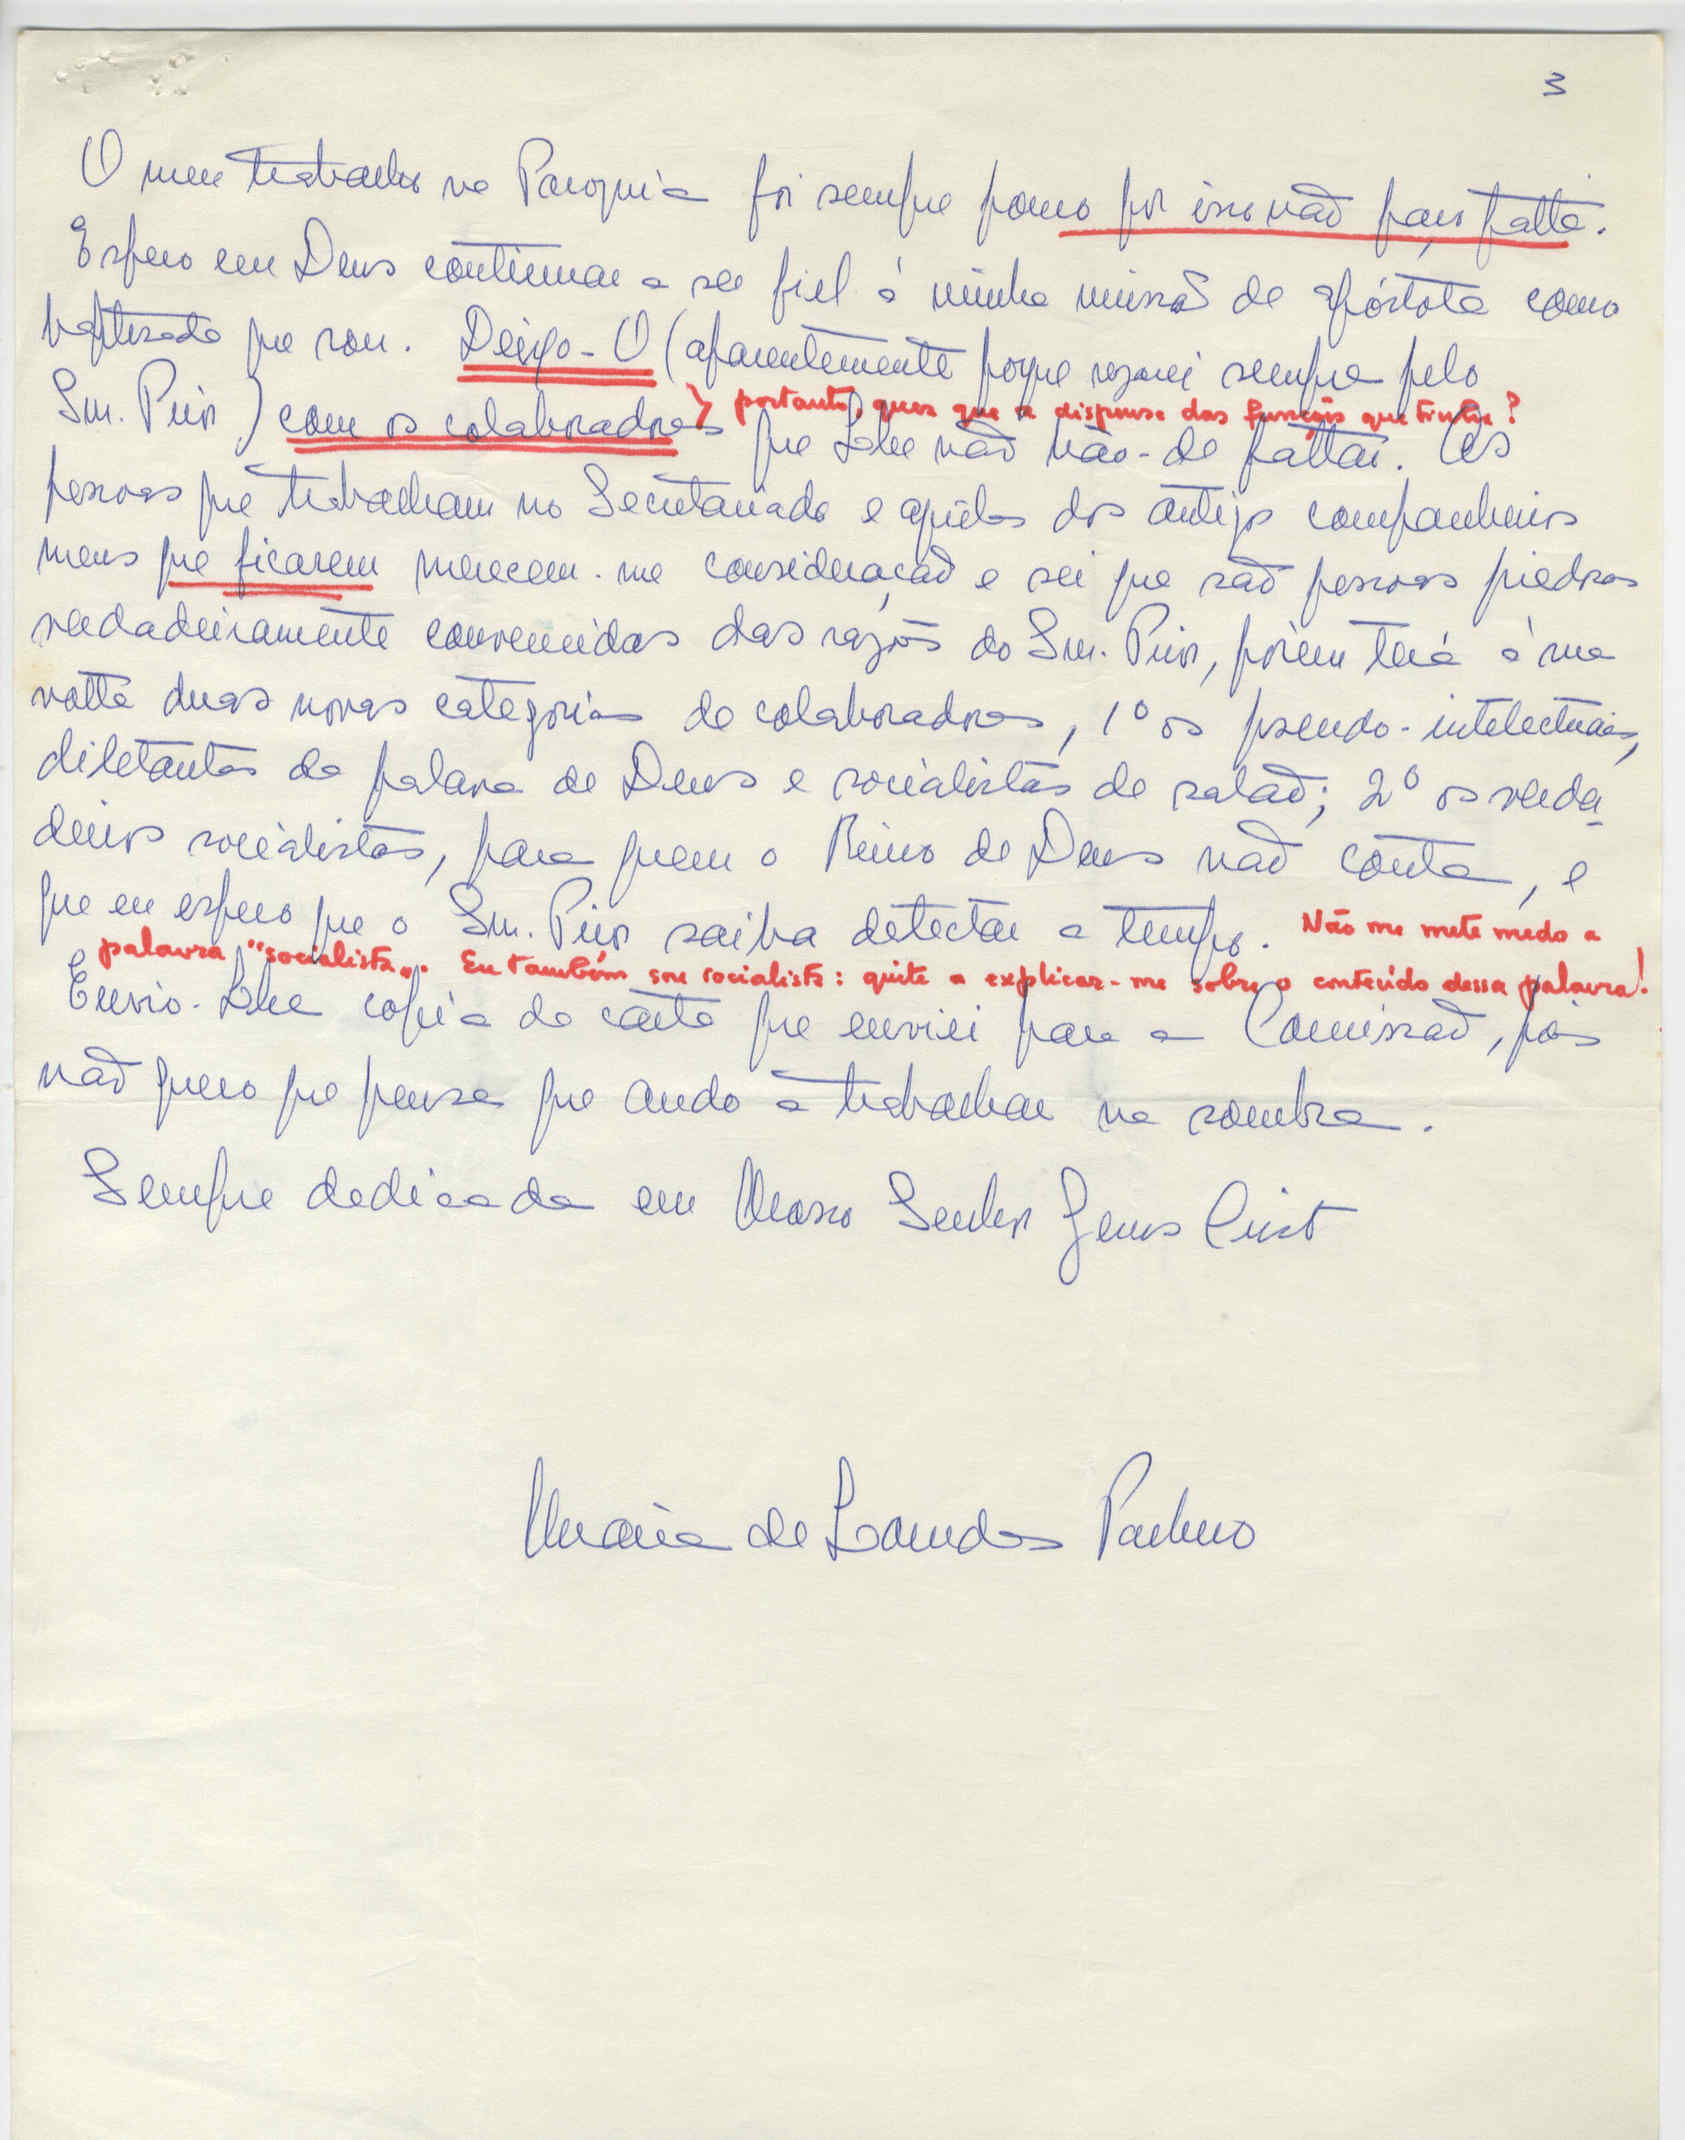 3
O meu trabalho na Paroquia foi sempre pouco por isso não faço falta.
Espero em Deus continuar a ser fiel á minha missão de apóstola como
baptizada que sou. Deixo-O (aparentemente porque rezarei sempre pelo
Snr. Prior) com os colaboradores
portanto, quer que a dispense das funções que tinha?
que Lhe não hão-de faltar. As
pessoas que trabalham no Secretariado e aquelas dos antigos companheiros
meus que ficarem merecem-me consideração e sei que são pessoas piedosas
verdadeiramente convencidas das razões do Snr. Prior, porém terá á sua
volta duas novas categorias de colaboradores, 1º os pseudo-intelectuais,
diletantes da palavra de Deus e socialistas de salão; 2º os verda-
deiros socialistas, para quem o Reino de Deus não conta, e
que eu espero que o Snr. Prior saiba detectar a tempo. Não me mete medo a
palavra "socialista". Eu também sou socialista: quite a explicar-me sobre o conteúdo dessa palavra!
Envio-Lhe copia da carta que enviei para a Comissão, pois
não quero que pense que ando a trabalhar na sombra.
Sempre dedicada em Nosso Senhor Jesus Cristo
Maria de Lourdes Pacheco